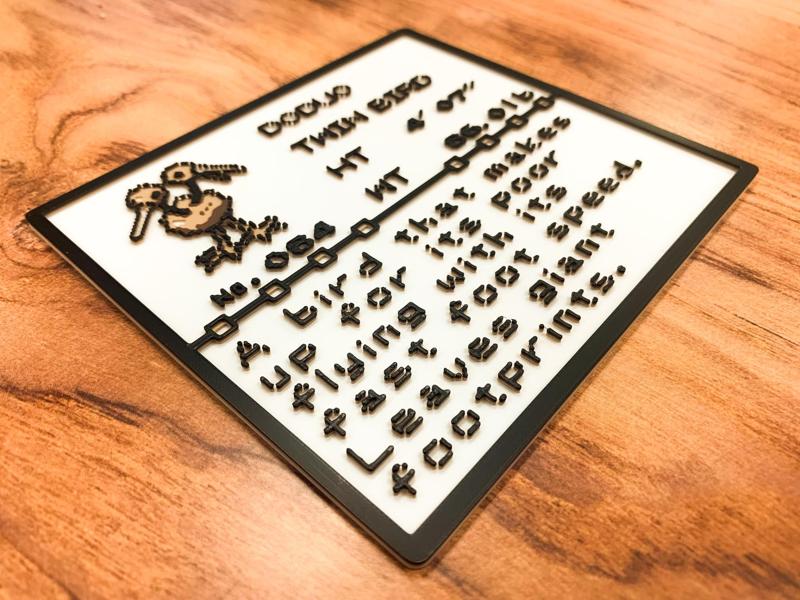 DODUO
TWIN BIRD
HT 4'07"
WT 86.0lb
No.084
A bird that makes
up for its poor
flying with its
fast foot speed.
Leaves giant
footprints.